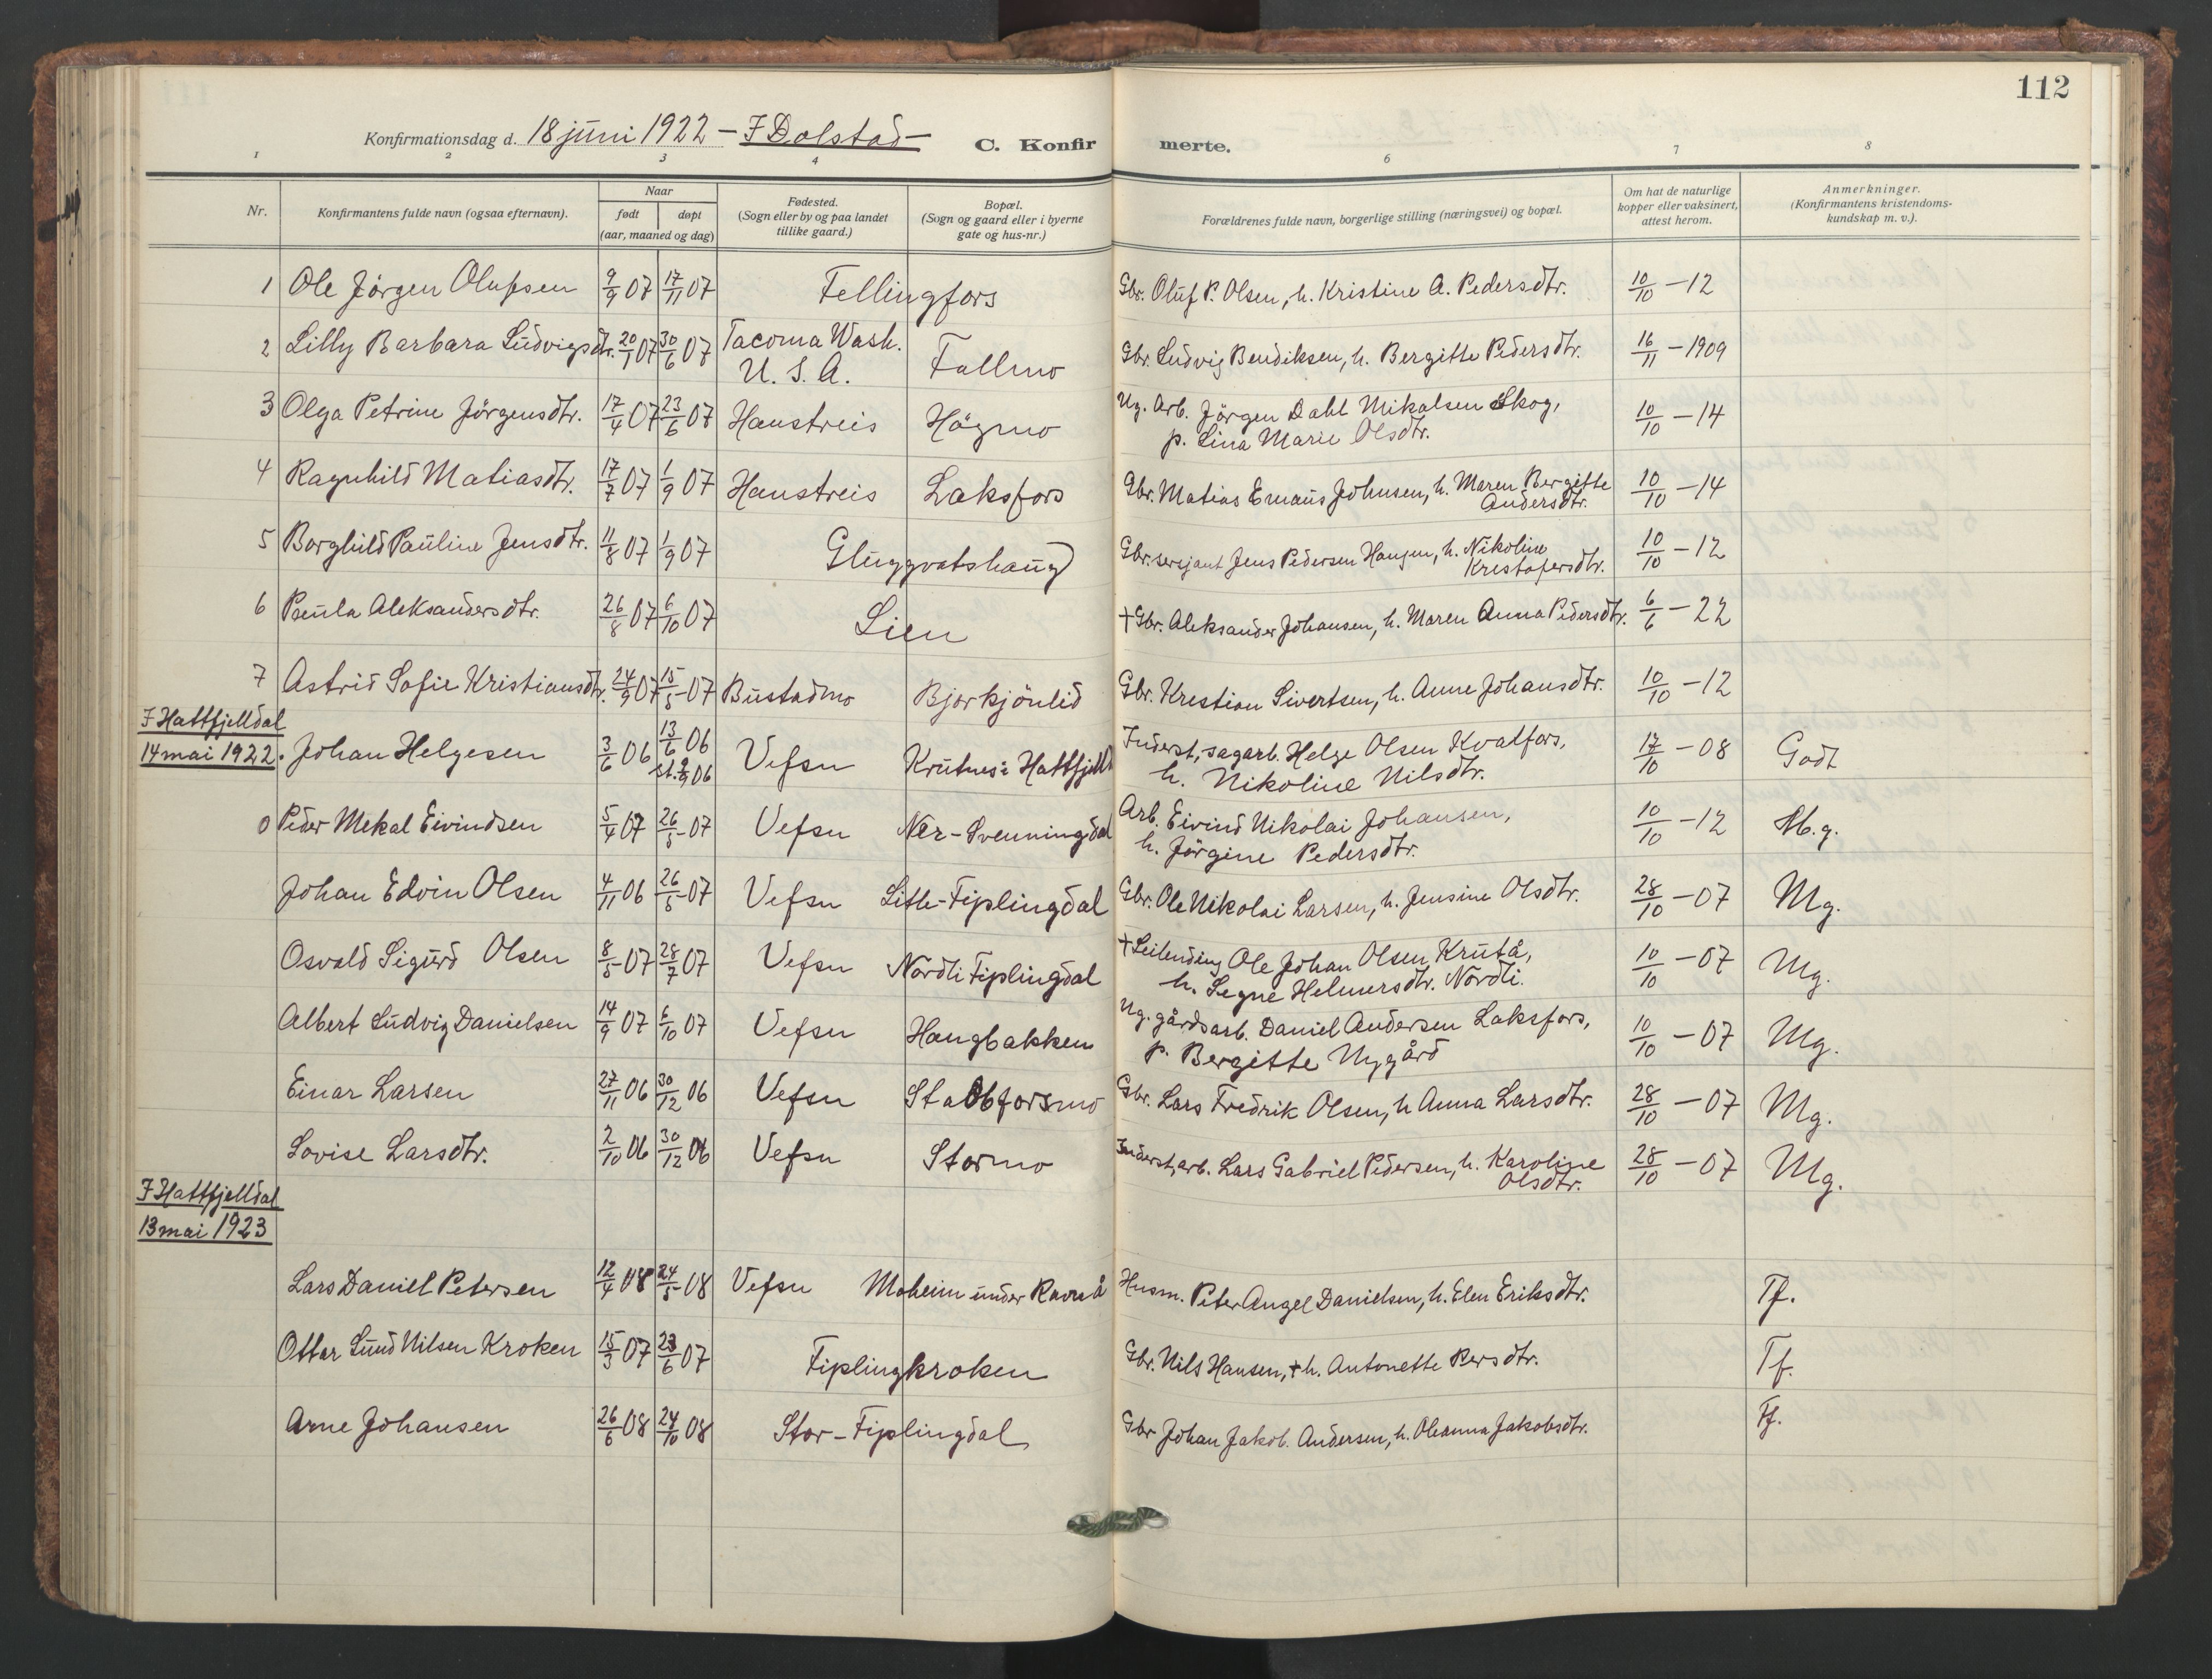 112
Konfirmationsdag d. 18 juni 1922 – I Dolstad –
C. Konfirmerte.
1 2 3 4 6 7 8
Nr. | Konfirmantens fulde navn (ogsaa efternavn). | Naar født | døpt (aar, maaned og dag) | Fødested. (Sogn eller by og paa landet tillike gaard.) | Bopæl. (Sogn og gaard eller i byerne gate og hus-nr.) | Forældrenes fulde navn, borgerlige stilling (næringsvei) og bopæl. | Om hat de naturlige kopper eller vaksinert, attest herom. | Anmerkninger. (Konfirmantens kristendoms-kundskap m. v.).
1 Ole Jörgen Olufsen 9/9 07 17/11 07 Fellingfors Gbr. Oluf P. Olsen, h. Kristine A. Pedersdtr. 10/10 – 12
2 Lilly Barbara Ludvigsdtr. 20/1 07 30/6 07 Tacoma Wash. U. S. A. Fallmo Gbr. Ludvig Bendiksen, h. Bergitte Pedersdtr. 16/11 – 1909
3 Olga Petrine Jörgensdtr. 17/4 07 23/6 07 Haustreis Högmo Ug. Arb. Jörgen Dahl Mikalsen Skog, p. Lina Marie Olsdtr. 10/10 – 14
4 Ragnhild Matiasdtr. 17/7 07 1/9 07 Haustreis Laksfors Gbr. Matias Emaus Johnsen, h. Maren Bergitte Andersdtr. 10/10 – 14
5 Borghild Pauline Jensdtr. 11/8 07 1/9 07 Gluggvatshaug Gbr. sersjant Jens Pedersen Haugen, h. Nikoline Kristofersdtr. 10/10 – 12
6 Paula Aleksandersdtr. 26/8 07 6/10 07 Lien + Gbr. Aleksander Johansen, h. Maren Anna Pedersdtr. 6/6 – 22
7 Astrid Sofie Kristiansdtr. 24/9 07 15/5 07 Bustadmo Bjorkjönlid Gbr. Krestian Sivertsen, h. Anne Johansdtr. 10/10 – 12
I Hattfjelldal
14 mai 1922. Johan Helgesen 3/6 06 13/6 06 st. 2/9 06 Vefsn Krutnes i Hattfjelld Inderst, sagarb. Helge Olsen Kvalfors, h. Nikoline Nilsdtr. 17/10 – 08 Godt
0 Peder Mekal Eivindsen 5/4 07 26/5 07 Vefsn Ner-Svenningdal Arb. Eivind Nikolai Johansen, h. Jörgine Pedersdtr. 10/10 – 12 M.g.
Johan Edvin Olsen 4/11 06 26/5 07 Vefsn Litle-Fiplingdal Gbr. Ole Nikolai Larsen, h. Jensine Olsdtr. 28/10 – 07 Mg.
Osvald Sigurd Olsen 8/5 07 28/7 07 Vefsn Nordli Fiplingdal + Leilending Ole Johan Olsen Krutå, h. Segne Helmersdtr. Nordli. 10/10 – 07 Mg.
Albert Ludvig Danielsen 14/9 07 6/10 07 Vefsn Haugbakken Ug. gårdsarb. Daniel Andersen Laksfors, p. Bergitte Nygård 10/10 – 07 Mg.
Einar Larsen 27/11 06 30/12 06 Vefsn Stabbforsmo Gbr. Lars Fredrik Olsen, h Anna Larsdtr. 28/10 – 07 Mg.
Lovise Larsdtr. 2/10 06 30/12 06 Vefsn Stormo Inderst, arb. Lars Gabriel Pedersen, h. Karoline Olsdtr. 28/10 – 07 Mg.
I Hattfjelldal
13 mai 1923
Lars Daniel Petersen 12/4 08 24/5 08 Vefsn Moheim under Ravnå Husm. Peter Angel Danielsen, h. Elen Eriksdtr. Tf.
Ottar Lund Nilsen Kroken 15/3 07 23/6 07 Fiplingkroken Gbr. Nils Hansen, + h. Antonette Persdtr. Tf.
Arne Johansen 26/6 08 24/10 08 Stor-Fiplingdal Gbr Johan Jakob. Andersen, h. Oleanna Jakobsdtr. Tf.